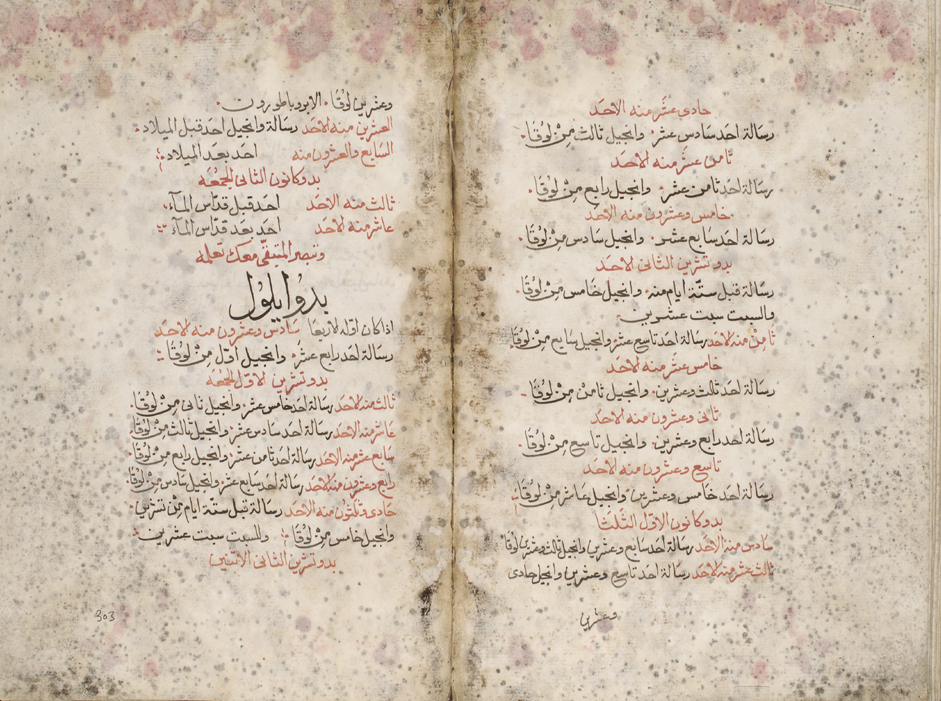 حادي عشر منه الاحد
رسالة احد سادس عشر وانجيل ثالث من لوقا
ثامن عشر منه الاحد
رسالة احد ثامن عشر وانجيل رابع من لوقا
خامس وعشرون منه الاحد
رسالة احد سابع عشر وانجيل سادس من لوقا
بدو تشرين الثاني الاحد
رسالة قبل ستة ايام منه وانجيل خامس من لوقا
والسبت سبت عشرين
ثامن منه الاحد رسالة احد تاسع عشر وانجيل سابع من لوقا
خامس عشر منه الاحد
رسالة احد ثالث وعشرين وانجيل ثامن من لوقا
ثاني وعشرون منه الاحد
رسالة احد رابع وعشرين وانجيل تاسع من لوقا
تاسع وعشرون منه الاحد
رسالة احد خامس وعشرين وانجيل عاشر من لوقا
بدو كانون الاول الثلثا
سادس منه الاحد رسالة احد سابع وعشرين وانجيل ثالث وعشرين لوقا
ثالث عشر منه الاحد رسالة احد تاسع وعشرين وانجيل حادي
وعشرين
وعشرين لوقا
العشرين منه الاحد رسالة وانجيل احد قبل الميلاد
السابع والعشرون منه احد بعد الميلاد
بدو كانون الثاني الجمعه
ثالث منه الاحد احد قبل قداس المآء
عاشر منه الاحد احد بعد قداس المآء
معك تعمله
بدو ايلول
اذا كان اوله لاربعا سادس وعشرون منه الاحد
رسالة احد رابع عشر وانجيل اول من لوقا
بدو تشرين الاول الجمعه
ثالث منه الاحد رسالة احد خامس عشر وانجيل ثاني من لوقا
عاشر منه الاحد رسالة احد سادس عشر وانجيل ثالث من لوقا
سابع عشر منه الاحد رسالة احد ثامن عشر وانجيل رابع من لوقا
رابع وعشرون منه الاحد رسالة احد سابع عشر وانجيل سادس من لوقا
حادي وثلثون منه الاحد رسالة قبل ستة ايام من تشرين
وانجيل خامس من لوقا والسبت سبت عشرين
بدو تشرين الثاني الاثنين
303